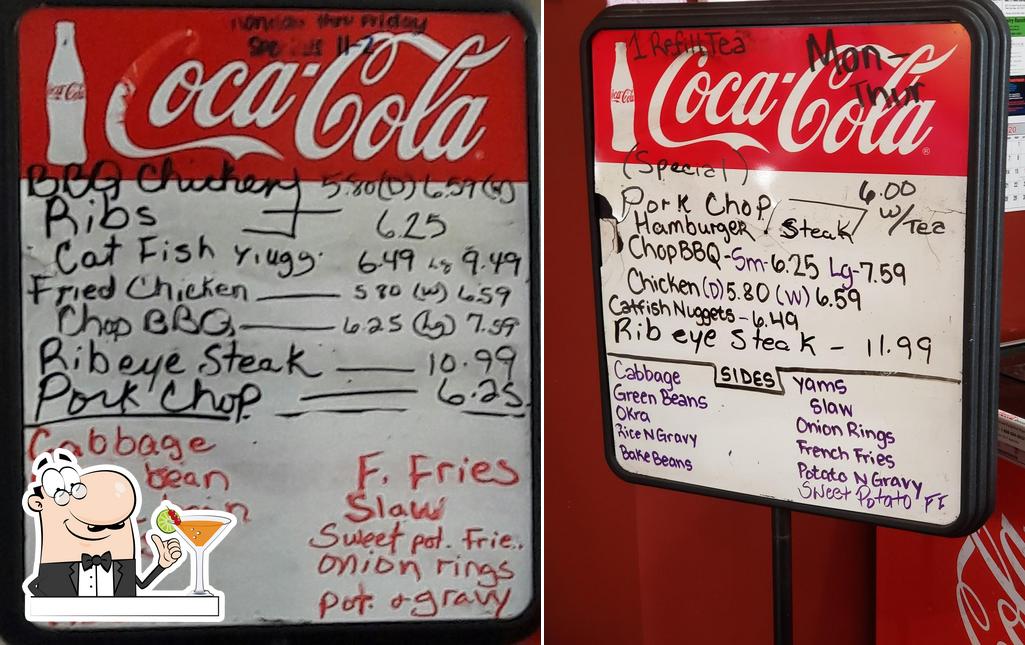 Monday thru Friday
Specials 11-2
Coca-Cola
Coca-Cola
BBQ Chicken 5.80(D) 6.59(W)
Ribs 6.25
Cat Fish 6.49 Lg 9.49
Fried Chicken 5.80 (W) 6.59
Chop BBQ 6.25 (Lg) 7.59
Ribeye Steak 10.99
Pork Chop 6.25
Cabbage
bean
F. Fries
Slaw
Sweet pot. Frie.
onion rings
pot. & gravy
1 Refill Tea
Mon-
Thur
Coca-Cola
Coca-Cola
(Special)
6.00
Pork Chop
w/Tea
Hamburger Steak
Chop BBQ-Sm-6.25 Lg-7.59
Chicken (D) 5.80 (W) 6.59
Catfish Nuggets - 6.49
Rib eye Steak - 11.99
SIDES
Cabbage
Green Beans
Okra
Rice N Gravy
Bake Beans
Yams
Slaw
Onion Rings
French Fries
Potato N Gravy
Sweet Potato FF
20